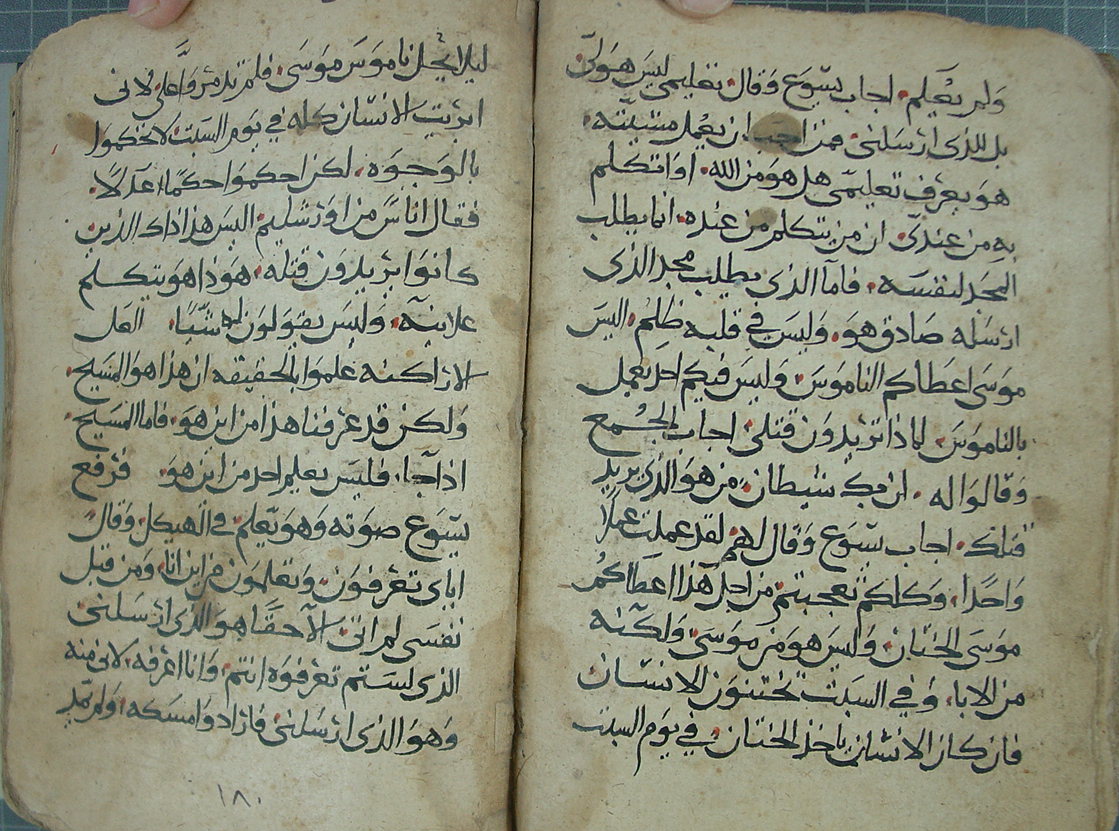 ولم يتعلم. اجاب يسوع وقال تعليمي ليس هو لي
بل للذى ارسلنى. فمن احب ان يعمل مشيته.
هو يعرف تعليمى هل هو من الله. او اتكلم
به من عندى. ان من يتكلم من عنده. انما يطلب
المجد لنفسه. فاما الذى يطلب مجد الذى
ارسله صادق هو. وليس في قلبه ظلم. اليس
موسى اعطاكم الناموس. وليس فيكم احد يعمل
بالناموس. لماذا تريدون قتلى. اجاب الجمع
وقالوا له. ان بك شيطان. من هو الذى يريد
قتلك. اجاب يسوع وقال لهم لقد عملت عملا
واحدا. وكلكم تعجبتم. من اجل هذا اعطاكم
موسى الختان. وليس هو من موسى. ولكنه
من الابا. وفي السبت تختنون الانسان
فان كان الانسان ياخذ الختان. في يوم السبت
ليلا يحل ناموس موسى. فلم تتدمروا على لانى
ابريت الانسان كله في يوم السبت. لا تحكموا
بالوجوه. لكن احكموا حكما عدلا.
فقال اناس من اورشليم. اليس هذا ذاك الذين
كانوا يريدون قتله. هوذا هو يتكلم
علانية. وليس يقولون له شيًا. لعل
الاراكنه علموا بالحقيقه ان هذا هو المسيح.
ولكن قد عرفنا هذا من اين هو. فاما المسيح.
اذا جا. فليس يعلم احد من اين هو. فرفع
يسوع صوته وهو يعلم في الهيكل. وقال
اياى تعرفون. وتعلمون من اين انا. ومن قبل
نفسى لم اتى. الا حقا هو الذى ارسلنى
الذى لستم تعرفوه انتم. وانا اعرفه. لانى منه
وهو الذى ارسلنى. فارادوا مسكه. ولم يمد
١٨٠